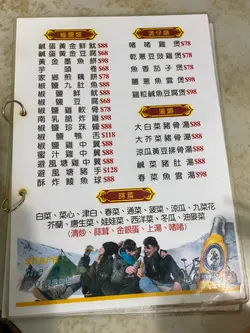 椒鹽類
鹹蛋黃金鮮魷$88
鹹蛋黃金豆腐$68
黃金墨魚餅$98
芋頭卷$68
家鄉煎藕餅$78
椒鹽九肚魚$88
椒鹽鮮魷$88
椒鹽豆腐$68
椒鹽雞軟骨$78
南乳脆炸雞$98
椒鹽珍珠蠔$88
椒鹽鴨舌$118
椒鹽雞中翼$88
蜜汁雞中翼$88
避風塘雞中翼$88
避風塘豬手$128
酥炸鯪魚球$88
煲仔類
啫啫雞煲$78
乾蔥豆豉雞煲$78
魚香茄子煲$78
薑蔥魚雲煲$98
雞粒鹹魚豆腐煲$78
湯類
大白菜豬骨湯$88
大芥菜豬骨湯$88
涼瓜黃豆排骨湯$88
鹹菜豬肚湯$88
春菜魚雲湯$98
時蔬
白菜、菜心、津白、春菜、通菜、菠菜、涼瓜、九菜花
芥蘭、唐生菜、娃娃菜、西洋菜、冬瓜、油麥菜
(清炒、蒜茸、金銀蛋、上湯、啫啫)